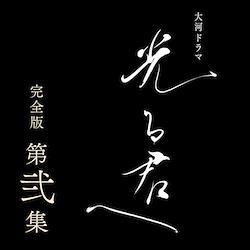 大河ドラマ
光る君へ
完全版
第弐集